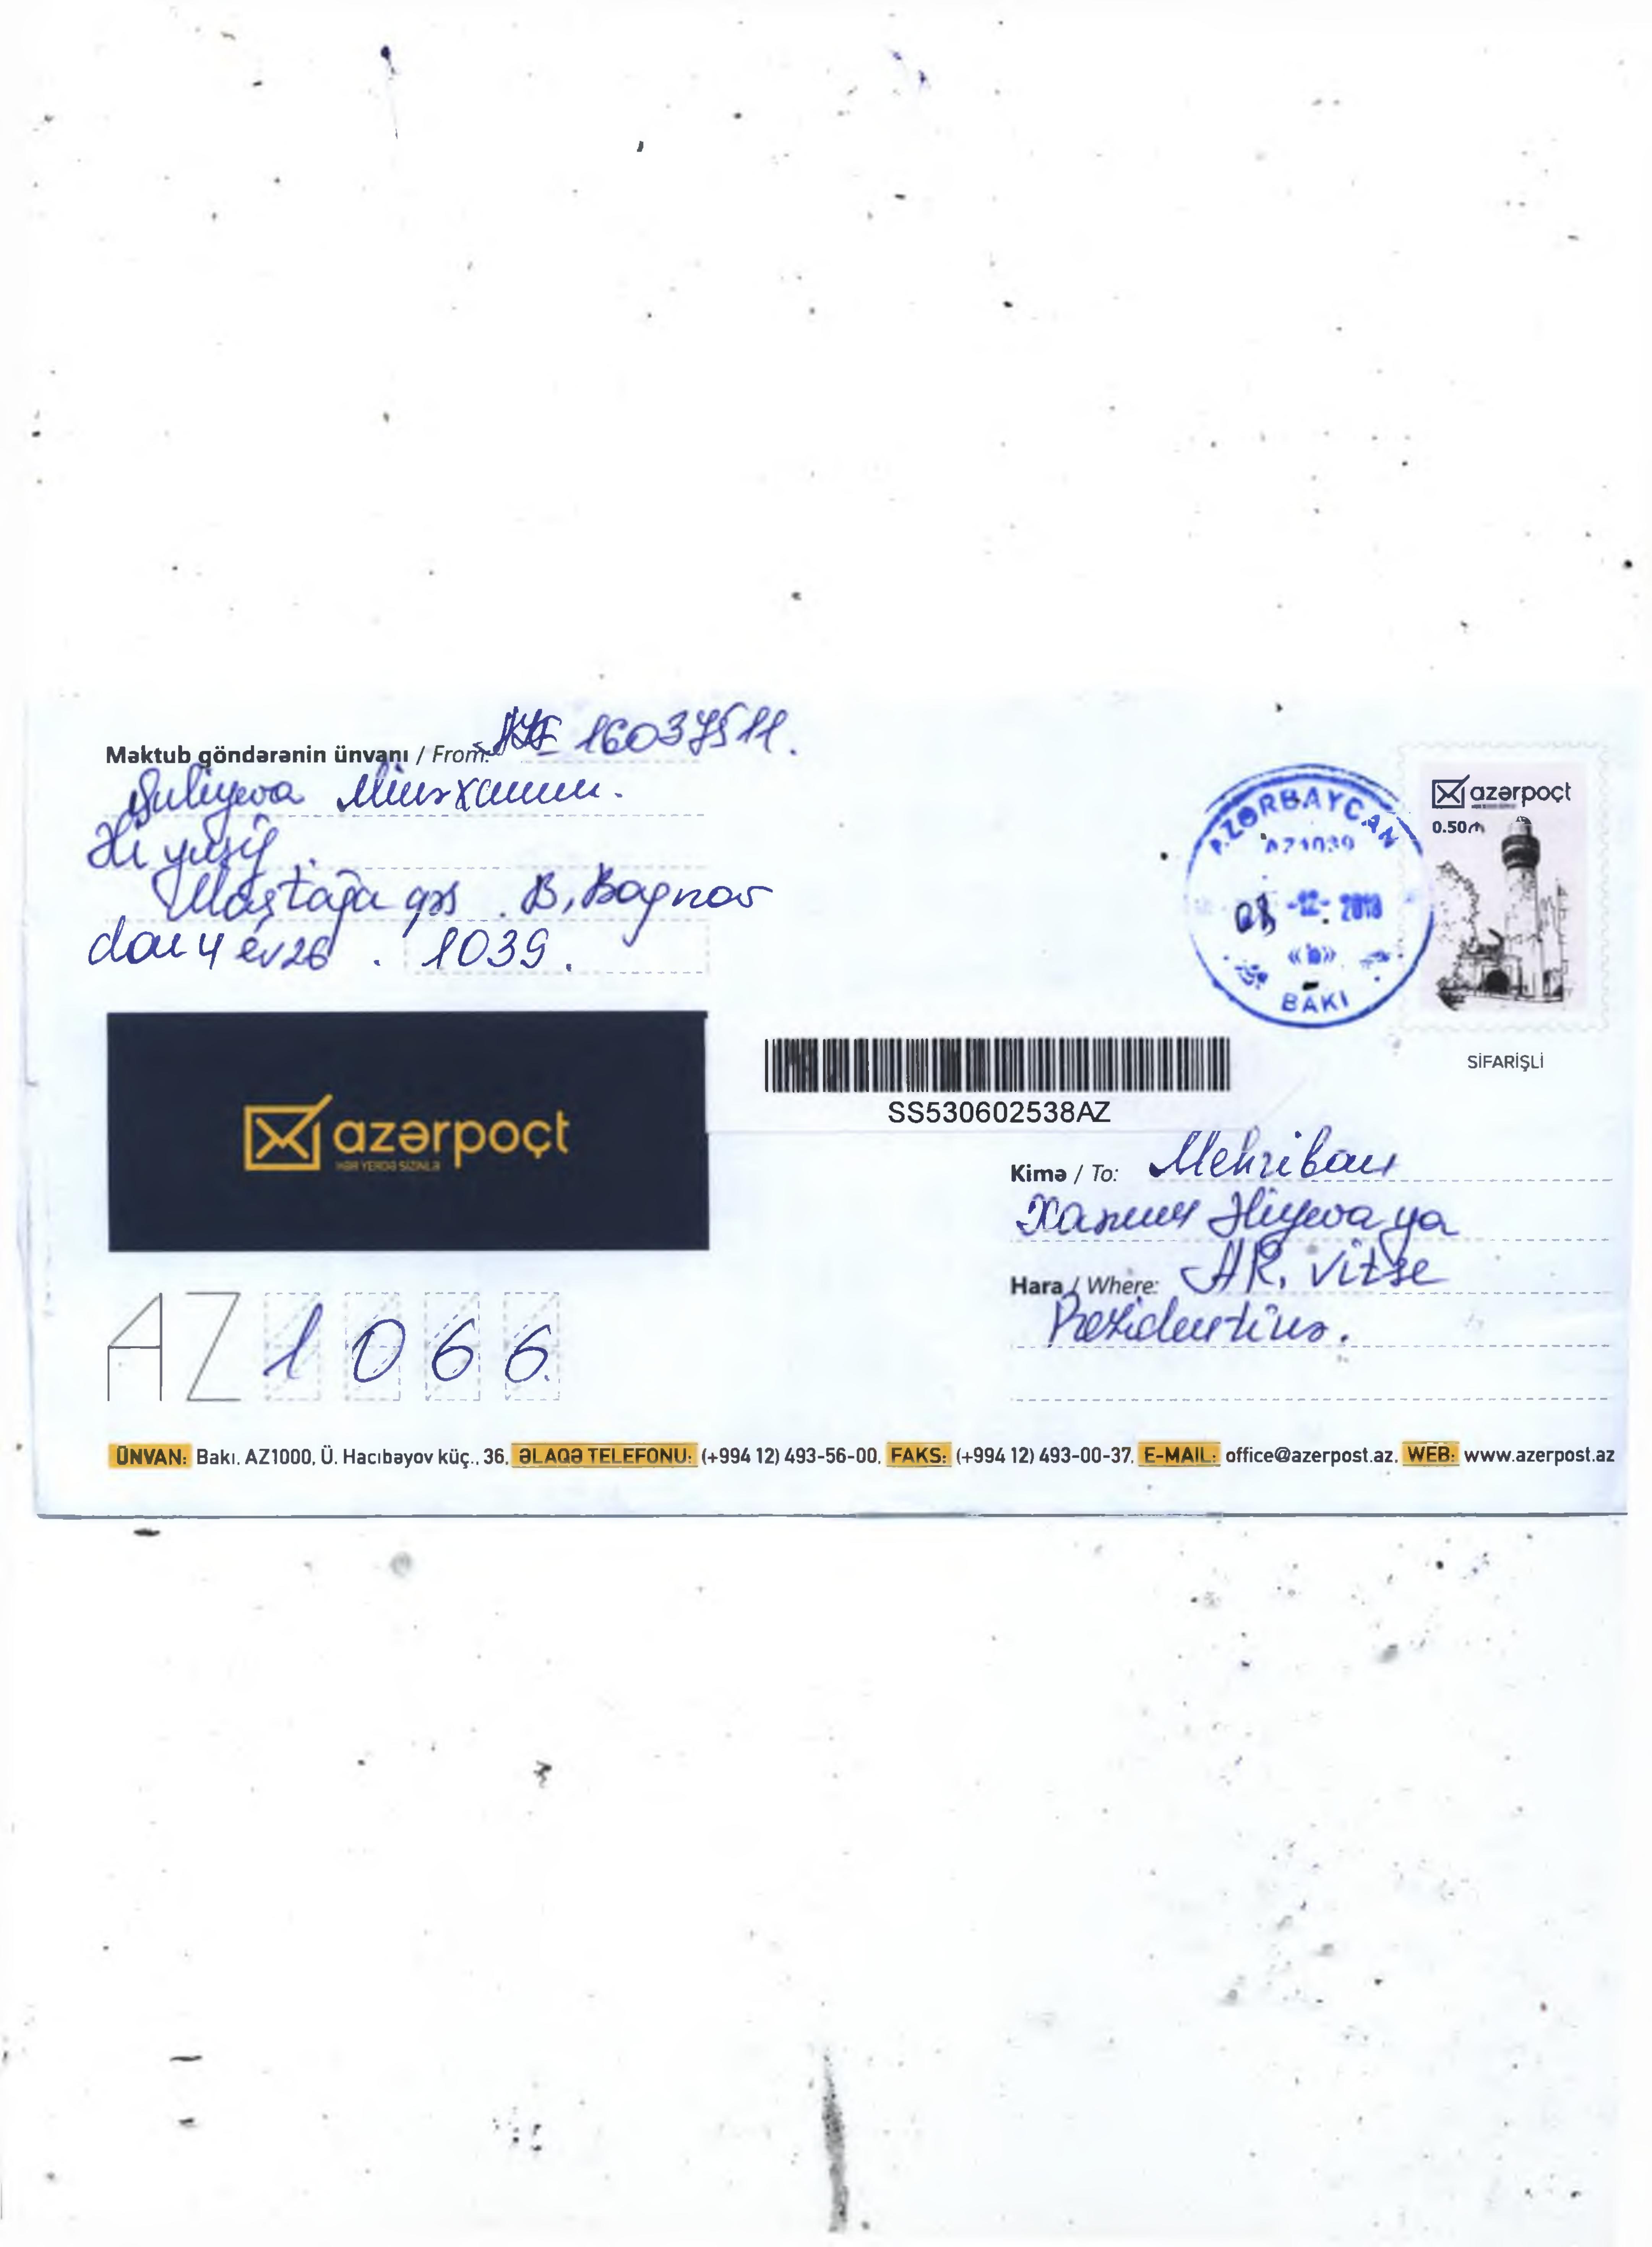 Məktub göndərənin ünvanı / From: 16037511.
Quliyeva Minəxanım.
Əli yusif.
Maştağa qəs. B, Bağırov
dal 4 ev 26. 1039.
AZƏRBAYCAN
AZ1039
-12-2018
«b»
BAKI
azərpoçt
0.50₼
SİFARİŞLİ
SS530602538AZ
azərpoçt
HƏR YERDƏ SİZİNLƏ
Kimə / To: Mehriban
Xanım Əliyeva ya
Hara / Where: AR, vitse
Prezidentinə.
AZ 1066
ÜNVAN: Bakı, AZ1000, Ü. Hacıbəyov küç., 36, ƏLAQƏ TELEFONU: (+994 12) 493-56-00, FAKS: (+994 12) 493-00-37, E-MAIL: office@azerpost.az, WEB: www.azerpost.az